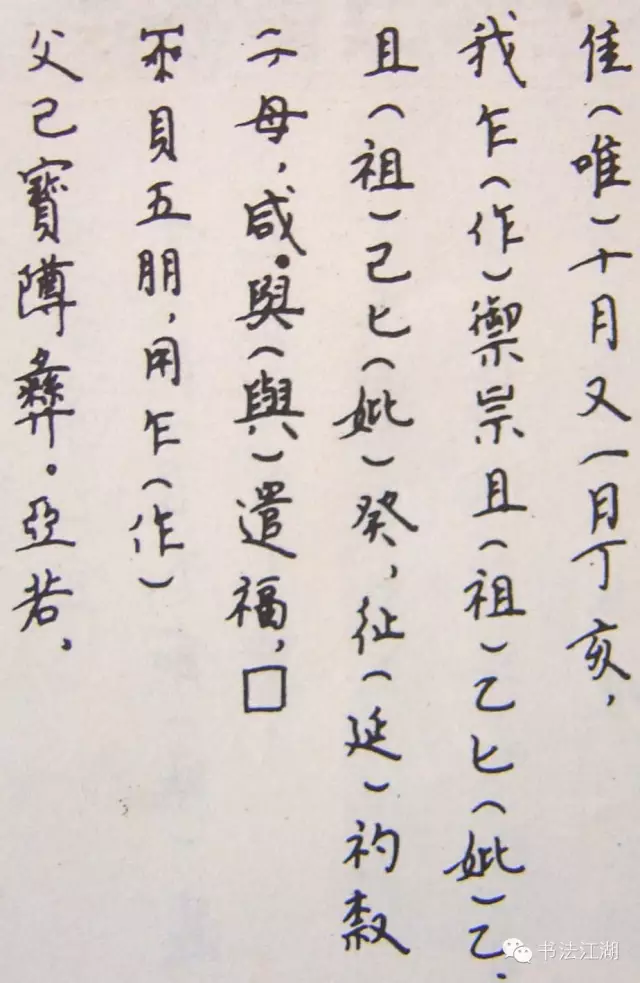 隹(唯)十月又一月丁亥,
我乍(作)禦祟且(祖)乙匕(妣)乙.
且(祖)己匕(妣)癸,征(延)礿𣏂
二母,咸。與(與)遣福,□
貝五朋,用乍(作)
父己寶䵼彝。亞若.
书法江湖